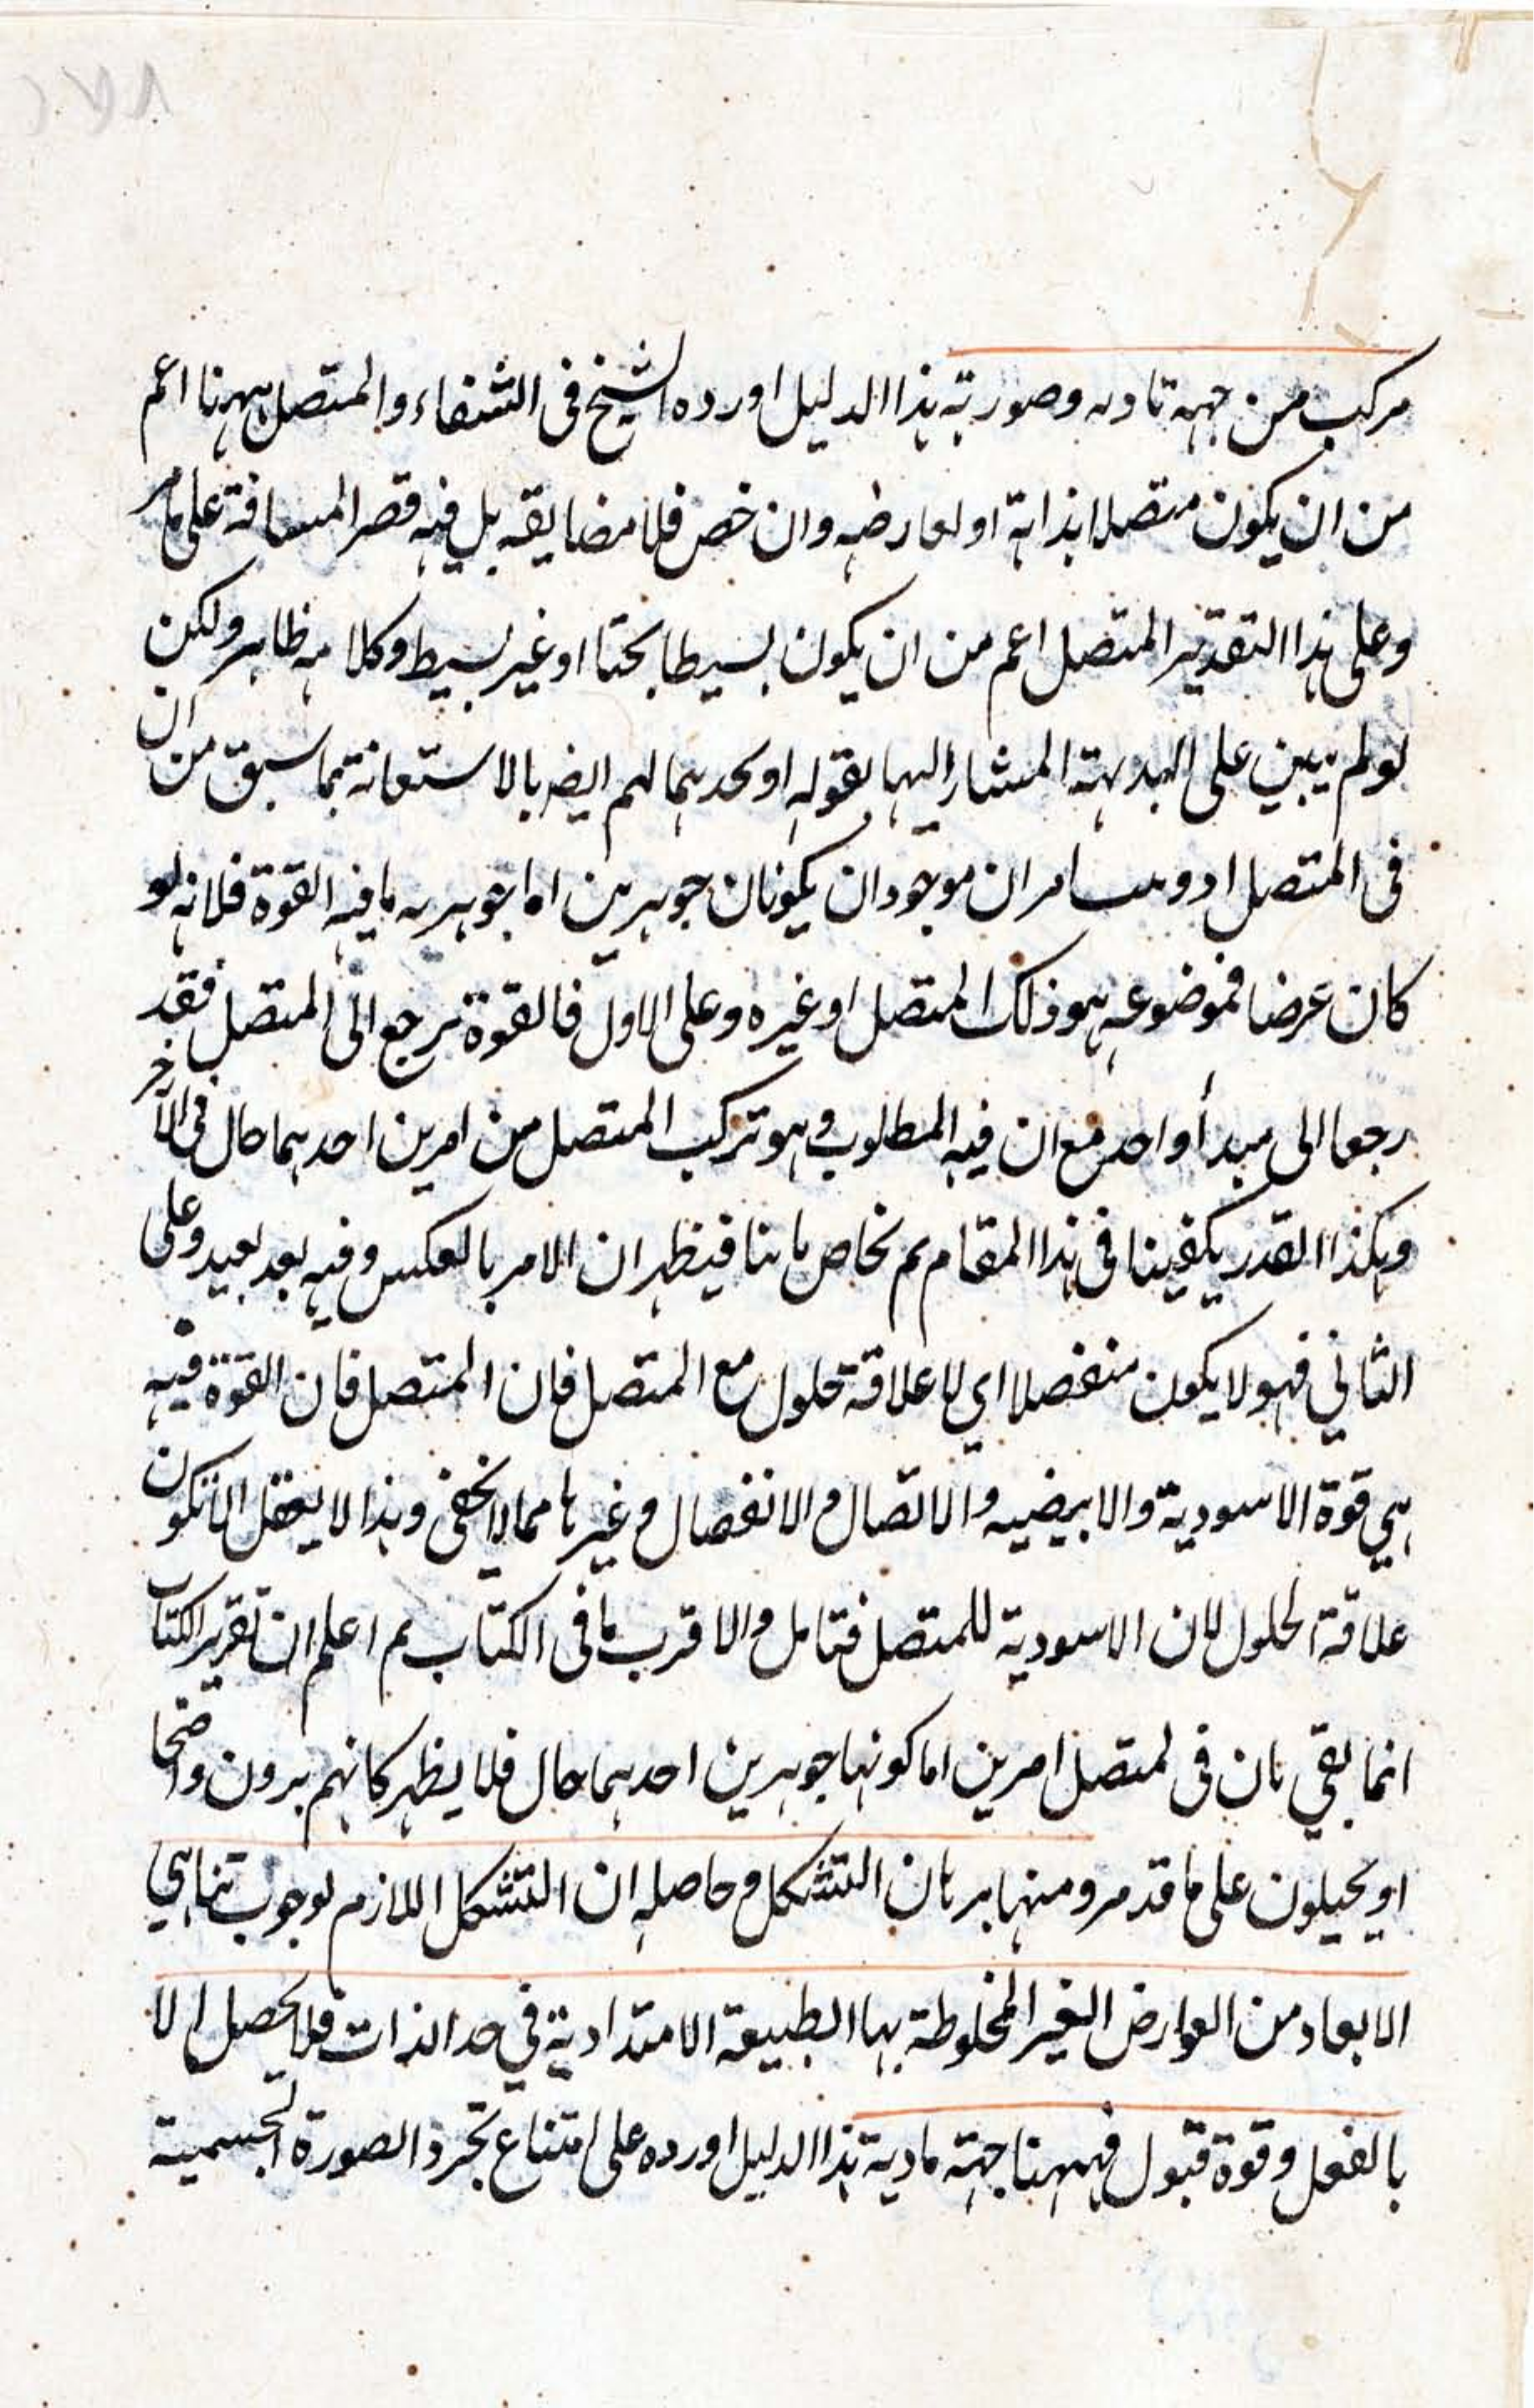 مركب من جهة مادية وصورية هذا الدليل اورده الشيخ فى الشفاء والمتصل ههنا اعم
من ان يكون متصلا بذاته او لعارضه وان خص فلا مضايقه بل فيه قصر المسافة على ما مر
وعلى هذا التقدير المتصل اعم من ان يكون بسيطا بحتا او غير بسيط وكلامه ظاهر ولكن
لو لم يبين على البديهة المشار اليها بقوله او نحديهما لهم ايضر بالاستعانة بما سبق من ان
فى المتصل امران موجودان يكونان جوهرين اما جوهريه ما فيه القوة فلانه لو
كان عرضا فموضوعه هو ذلك المتصل او غيره وعلى الاول فالقوة ترجع الى المتصل فقد
رجعا الى مبدأ واحد مع ان فيه المطلوب وهو تركب المتصل من امرين احدهما حال فى الآخر
وهكذا القدر يكفينا فى هذا المقام ثم فيظهر ان الامر بالعكس وفيه بعد بعيد وعلى
الثاني فهو لا يكون منفصلا اي لا علاقة حلول مع المتصل فان المتصل فان القوة فيه
هي قوة الاسودية والابيضيه والاتصال والانفصال وغيرها مما لا يخفى وهذا لا يعقل الا تكون
علاقة الحلول لان الاسودية للمتصل فتامل والاقرب ما فى الكتاب ثم اعلم ان تقرير الكتاب
انما يفي بان فى المتصل امرين اما كونها جوهرين احدهما حال فلا يظهر كانهم يرون واضحا
او يحيلون على ما قد مر ومنها برهان التشكل وحاصله ان التشكل اللازم لوجوب تناهي
الابعاد من العوارض الغير المخلوطة بها الطبيعة الامتدادية في حد الذات فلا يحصل الا
بالفعل وقوة قبول فههنا جهة مادية هذا الدليل اورده على امتناع تجرد الصورة الجسمية